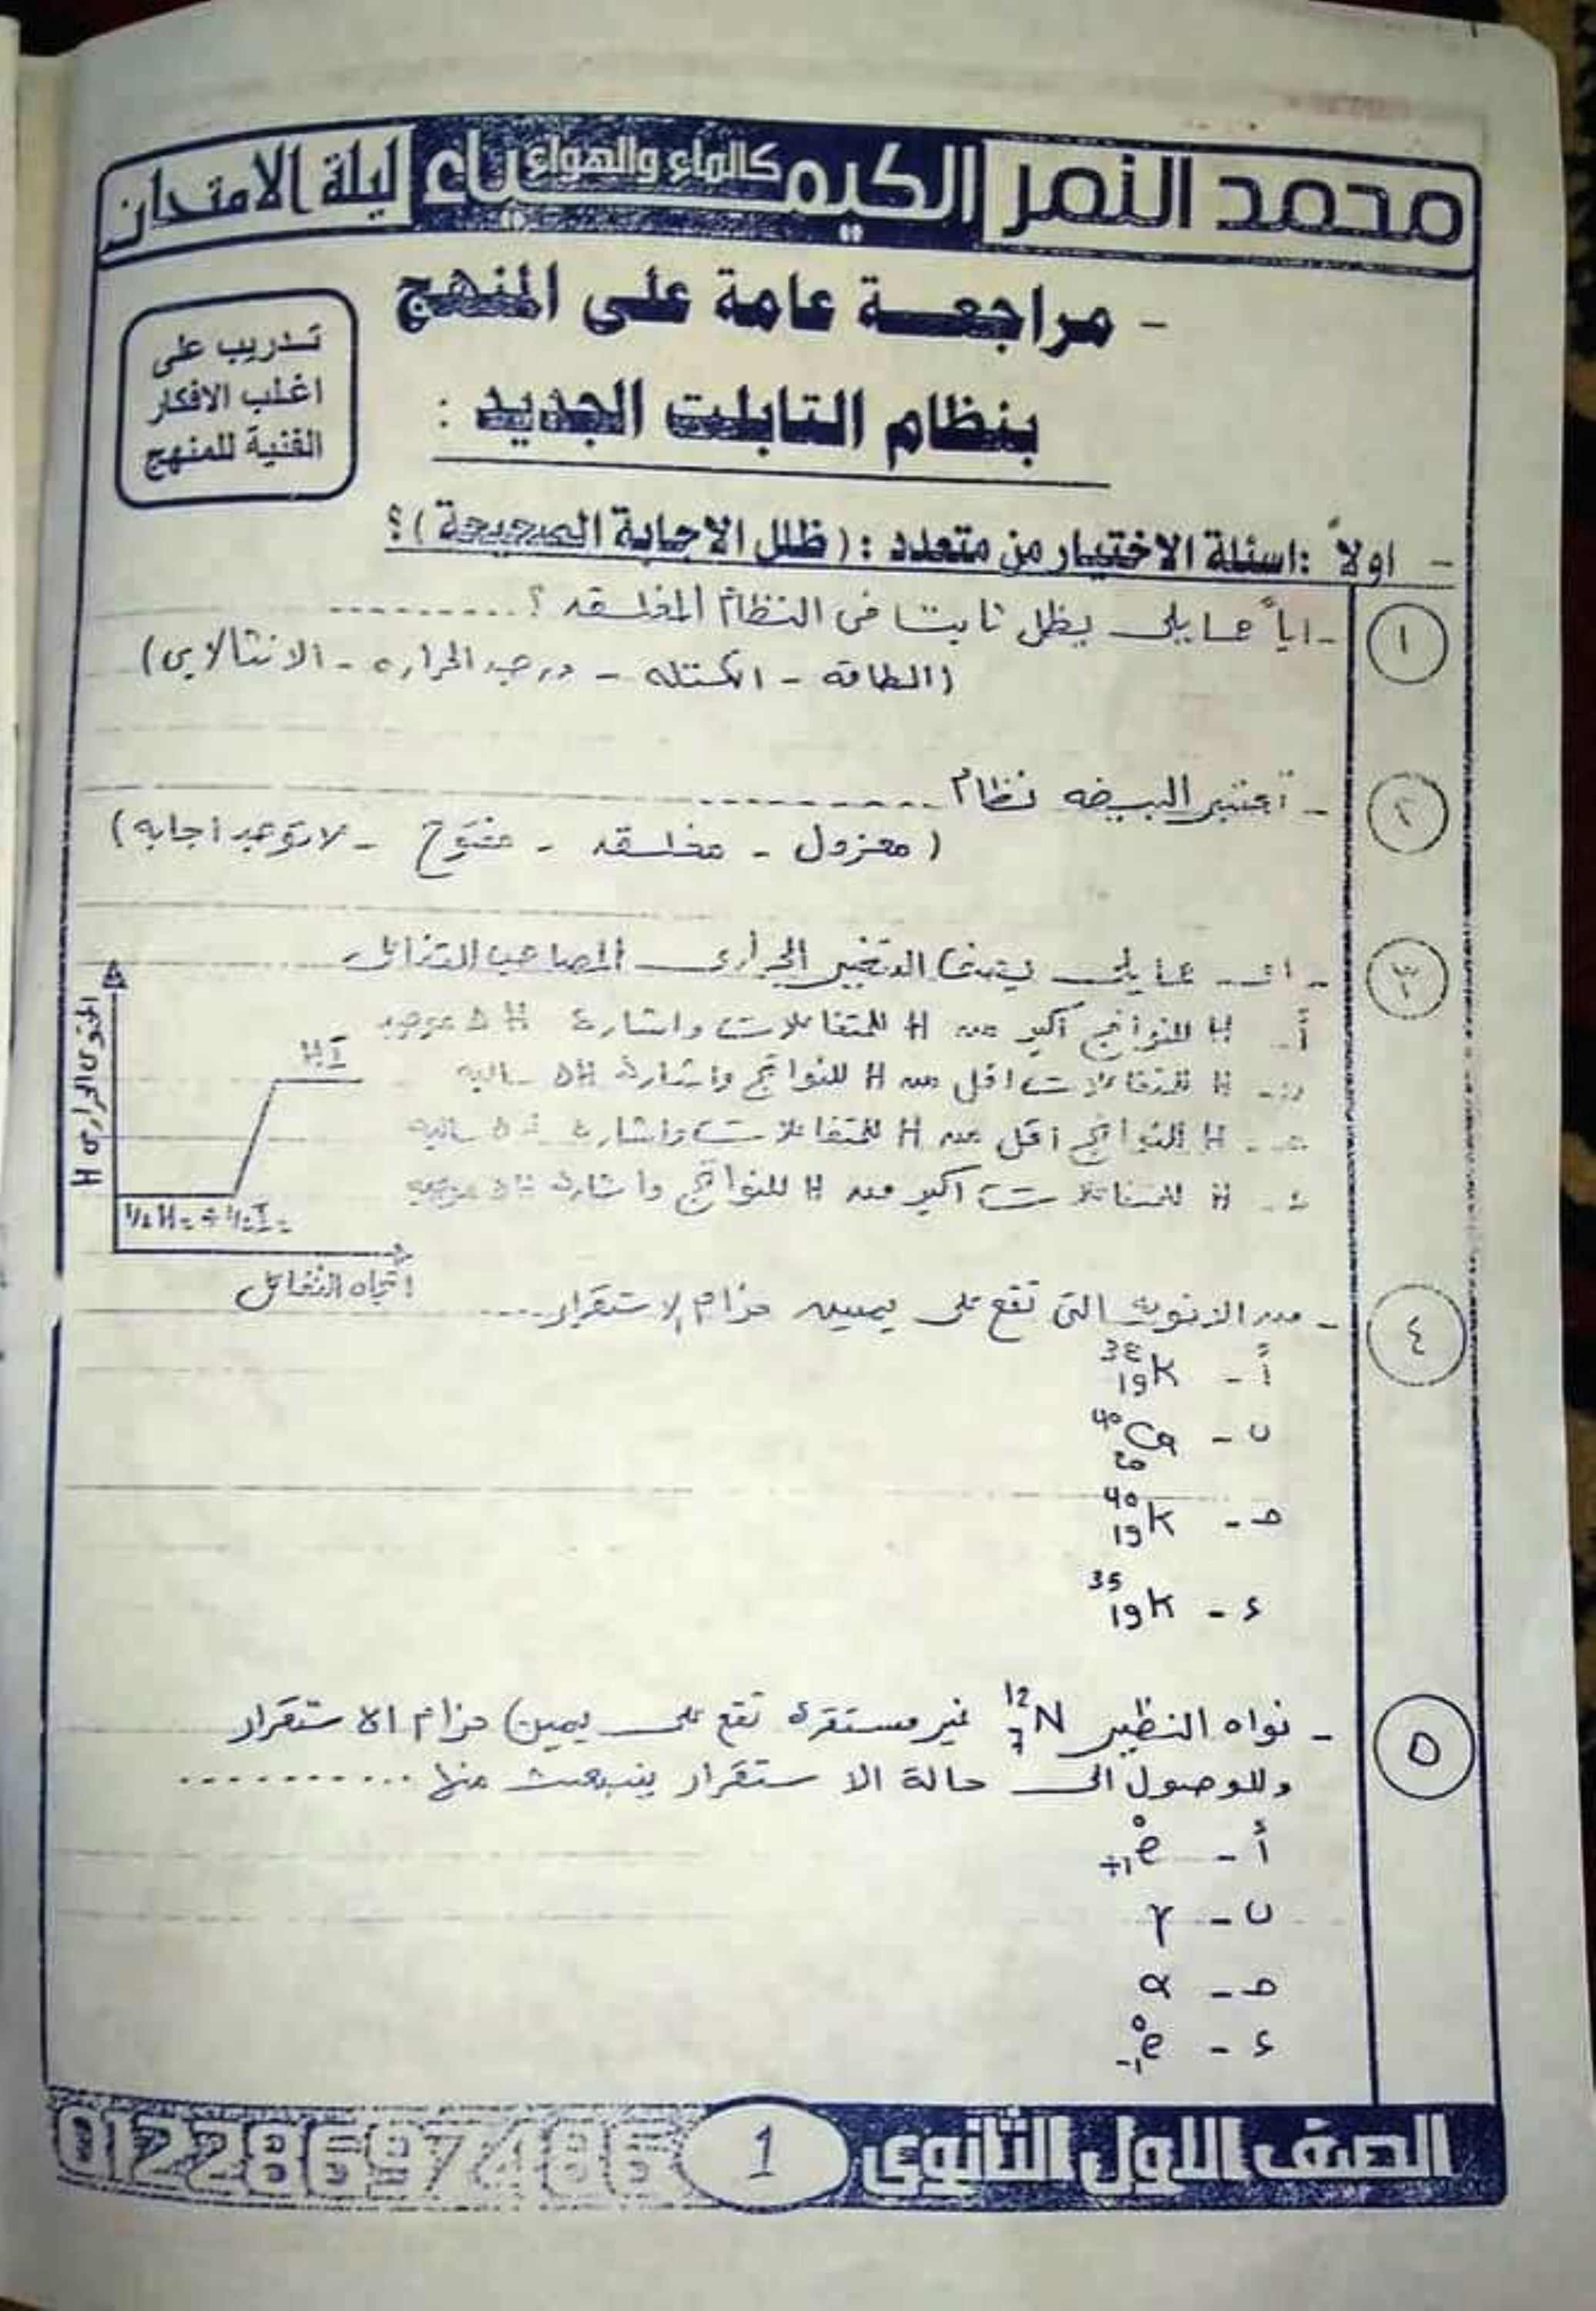 محمد النمر الكيمياء كالماء والهواء ليلة الامتحان
- مراجعة عامة على المنهج
بنظام التابلت الجديد :
تدريب على
اغلب الافكار
الفنية للمنهج
- اولاً : اسئلة الاختيار من متعدد : (ظلل الاجابة الصحيحة) ؟
١ - اياً مما يلى يظل ثابتا فى النظام المغلق ؟ ..........
(الطاقه - الكتله - درجه الحراره - الانثالابى)
٢ - تعتبر البيضه نظام ..........
(معزول - مغلقه - مفتوح - لا توجد اجابه)
٣ - اى مما يلى التغير الحرارى المصاحب للتفاعل
أ - H للنواتج أكبر من H للمتفاعلات واشارة ΔH موجبه
ب - H للمتفاعلات اقل من H للنواتج واشارة ΔH سالبه
حـ - H للنواتج اقل من H للمتفاعلات واشارة ΔH سالبه
ء - H للمتفاعلات اكبر من H للنواتج واشارة ΔH موجبه
المحتوى الحرارى H
HI
1/2 H₂ + 1/2 I₂
اتجاه التفاعل
٤ - من الانويه التى تقع على يمين حزام الاستقرار ..........
أ - ³⁸₁₉K
ب - ⁴⁰₂₀Ca
حـ - ⁴⁰₁₉K
ء - ³⁵₁₉K
٥ - نواه النظير ¹²₇N غير مستقرة تقع على يمين حزام الاستقرار
وللوصول الى حالة الاستقرار ينبعث منها ..........
أ - ⁰₊₁e
ب - γ
حـ - α
ء - ⁰₋₁e
الصف الاول الثانوى 1 01228697486